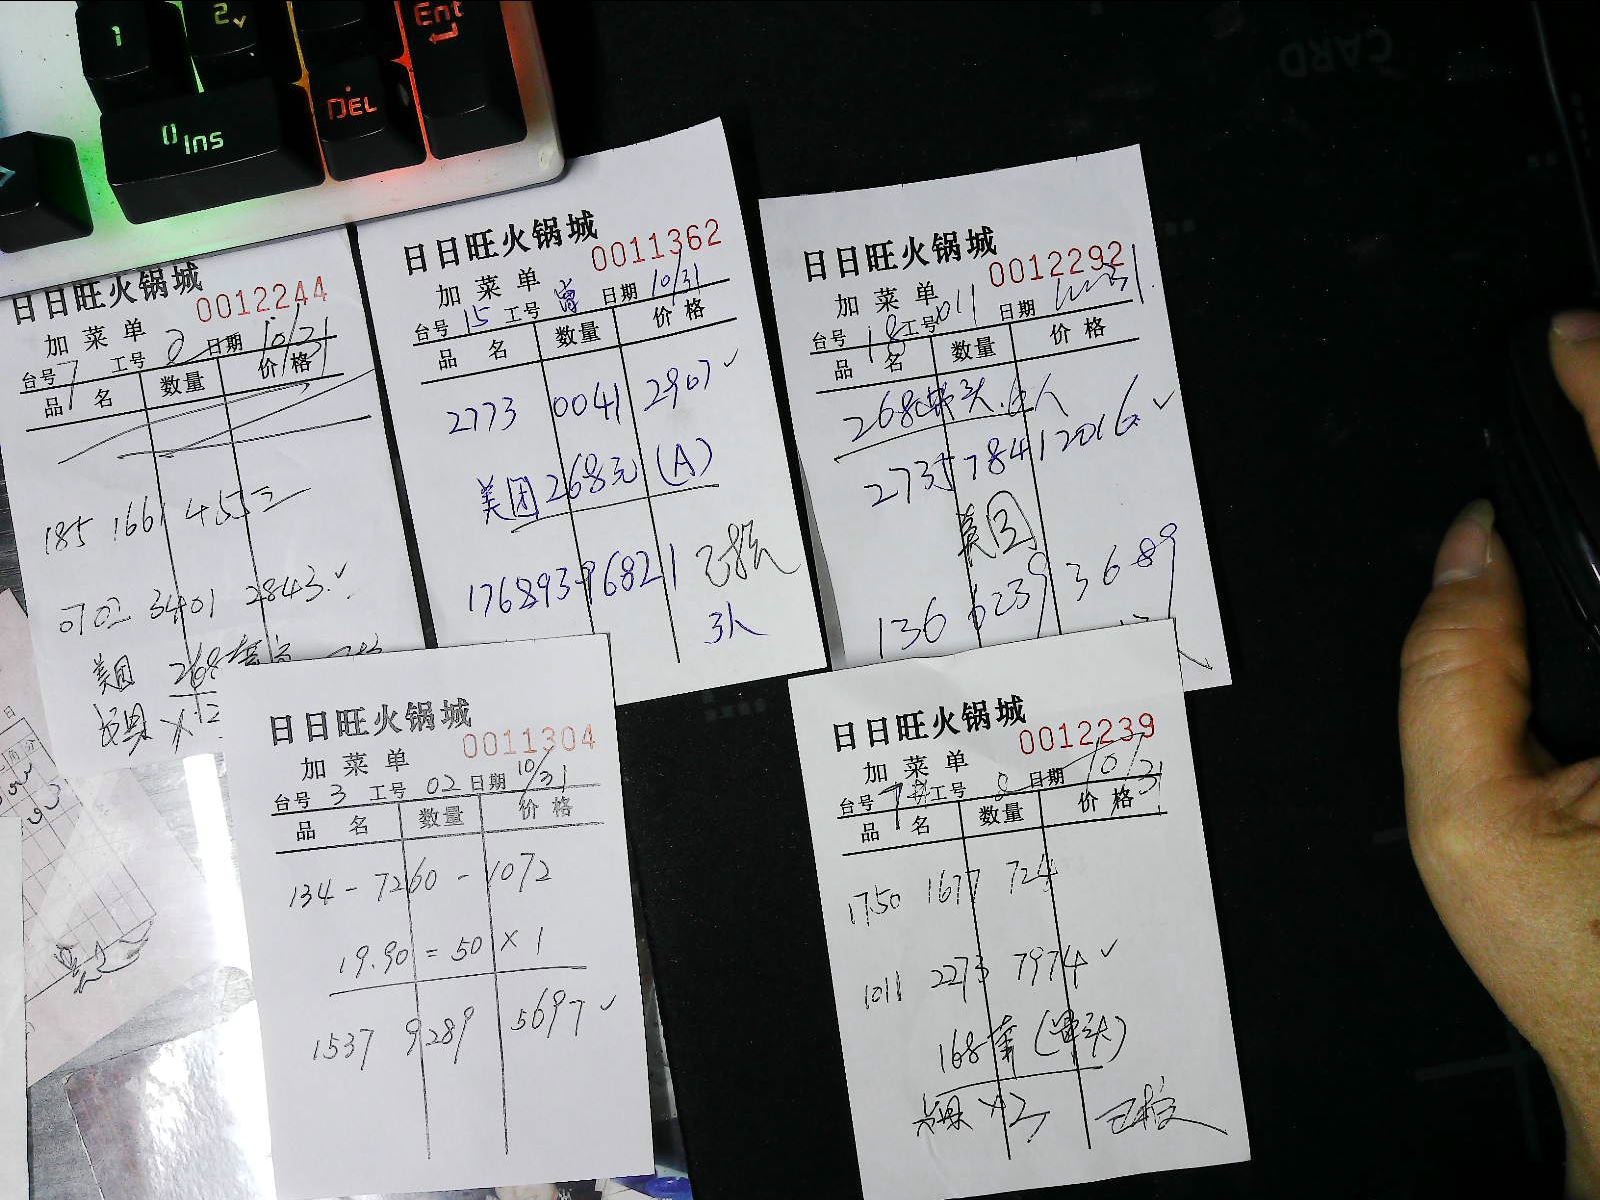 1
2
Ent
DEL
0 Ins
CARD
日日旺火锅城
0012244
加菜单
台号 7 工号 日期 10/31
品名 数量 价格
185 1661 4553
0702 3401 2843 ✓
美团 268
×12
日日旺火锅城
0011362
加菜单
台号 15 工号 日期 10/31
品名 数量 价格
2773 0041 2907 ✓
美团 268元 (A)
17689396821 已
3人
日日旺火锅城
0012292
加菜单
台号 18 工号 011 日期
品名 数量 价格
268 6人
2735 7841 2016 ✓
美团
136 6239 3689
日日旺火锅城
0011304
加菜单
台号 3 工号 02 日期 10/31
品名 数量 价格
134 - 7260 - 1072
19.90 = 50 × 1
1537 9289 5697 ✓
日日旺火锅城
0012239
加菜单
台号 7 工号 8 日期 10/31
品名 数量 价格
1750 1677 724
1011 2273 7974 ✓
168
×2 已核